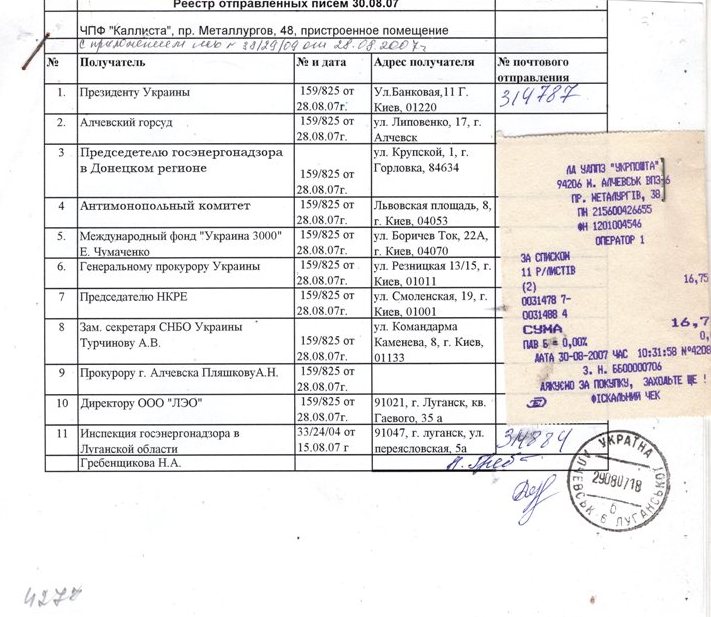 Реестр отправленных писем 30.08.07
ЧПФ "Каллиста", пр. Металлургов, 48, пристроенное помещение
с приложением 28.08.2007г
№ Получатель № и дата Адрес получателя № почтового
отправления
1. Президенту Украины 159/825 от Ул.Банковая,11 Г. 314787
28.08.07г. Киев, 01220
2. Алчевский горсуд 159/825 от ул. Липовенко, 17, г.
28.08.07г. Алчевск
3 Председетелю госэнергонадзора ул. Крупской, 1, г.
в Донецком регионе 159/825 от Горловка, 84634
28.08.07г.
4 Антимонопольный комитет 159/825 от Львовская площадь, 8,
28.08.07г. г. Киев, 04053
5. Международный фонд "Украина 3000" 159/825 от ул. Боричев Ток, 22А,
Е. Чумаченко 28.08.07г. г. Киев, 04070
6. Генеральному прокурору Украины 159/825 от ул. Резницкая 13/15, г.
28.08.07г. Киев, 01011
7 Председателю НКРЕ 159/825 от ул. Смоленская, 19, г.
28.08.07г. Киев, 01001
8 Зам. секретаря СНБО Украины ул. Командарма
Турчинову А.В. 159/825 от Каменева, 8, г. Киев,
28.08.07г. 01133
9 Прокурору г. Алчевска ПляшковуА.Н. 159/825 от
28.08.07г.
10 Директору ООО "ЛЭО" 159/825 от 91021, г. Луганск, кв.
28.08.07г. Гаевого, 35 а
11 Инспекция госэнергонадзора в 33/24/04 от 91047, г. луганск, ул.
Луганской области 15.08.07 г переясловская, 5а
Гребенщикова Н.А.
ЛА УДППЗ "УКРПОШТА"
94206 М. АЛЧЕВСЬК ВПЗ-6
ПР. МЕТАЛУРГІВ, 38
ПН 215600426655
ФН 1201004546
ОПЕРАТОР 1
ЗА СПИСКОМ
11 Р/ЛИСТІВ 16,75
(2)
0031478 7-
0031488 4
СУМА 16,7
ПДВ Б = 0,00% 0,
ДАТА 30-08-2007 ЧАС 10:31:58 №4208
З. Н. ББ00000706
ДЯКУЄМО ЗА ПОКУПКУ, ЗАХОДЬТЕ ЩЕ !
ФІСКАЛЬНИЙ ЧЕК
314884
УКРАЇНА
АЛЧЕВСЬК 6 ЛУГАНСЬКОЇ
29080718